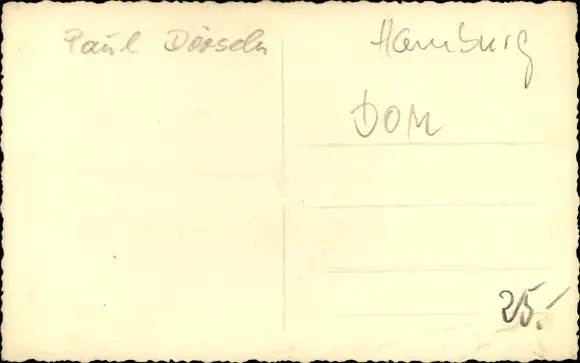 Paul Dörseln
Hamburg
DOM
25.-